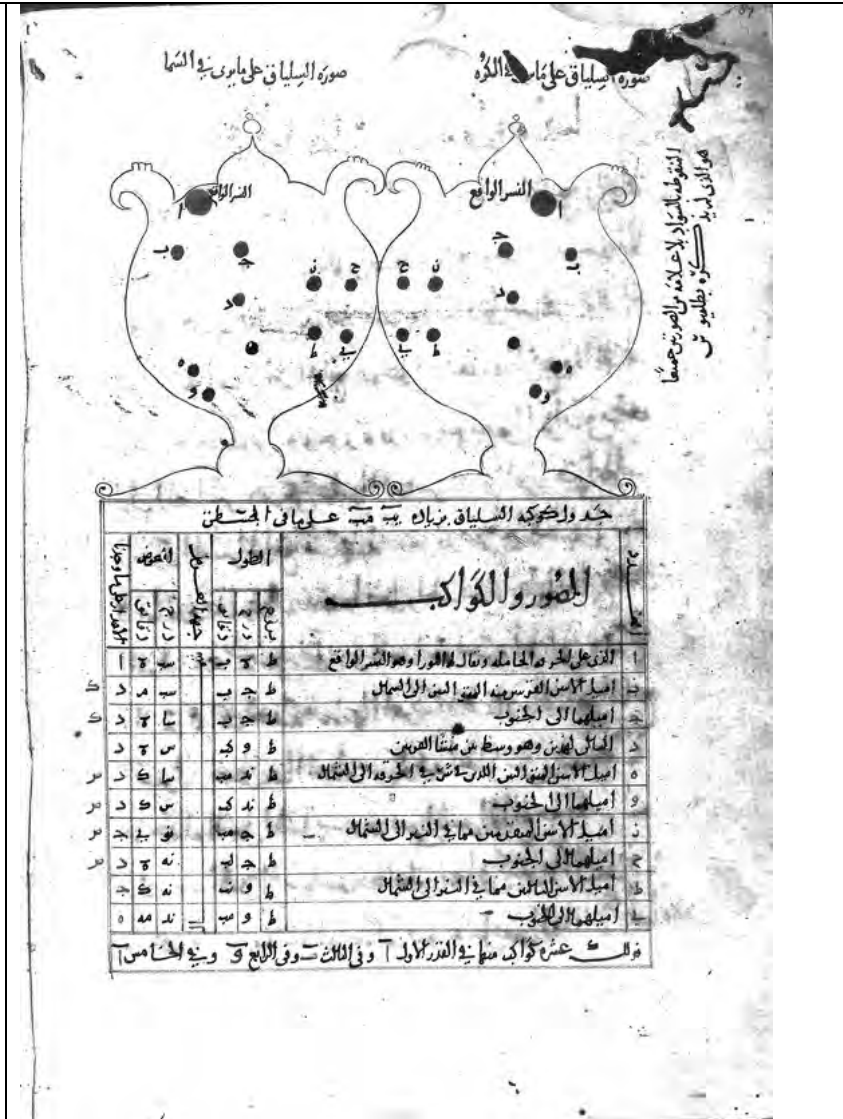 صورة السلياق على ما في الكره
صورة السلياق على ما يرى في السما
المنقوطه بالسواد بلا علامه من الصورتين جميعا
هو الذي لم يذكره بطلميوس
النسر الواقع
ا
ب
ج
د
ه
و
ز
ح
ط
ي
النسر الواقع
ا
ب
ج
د
ه
و
ز
ح
ط
ي
جدول كوكبه السلياق بزياده يب مب على ما في المجسطي
العدد الصور والكواكب الطول جهة العرض العرض
بروج درج دقائق درج دقائق
ا الذي على الخزفه الحامله ويقال لها اللورا وهو النسر الواقع ط ه ب سب ه ا
ب اميل الاثنين القريبين منه المتتاليين الى الشمال ط ج ب سب م د
ج اميلهما الى الجنوب ط ج ب سا ه د
د التالي لهذين وهو وسط بين منشا القرنين ط و كب س ه د
ه اميل الاثنين المتتاليين اللذين في شرقي الخزفه الى الشمال ط ند مب سا ك د
و اميلهما الى الجنوب ط ند ك س ك د
ز اميل الاثنين المتقدمين مما في النير الى الشمال ط ج مب نو ي ج
ح اميلهما الى الجنوب ط ج لب نه ه د
ط اميل الاثنين التاليين مما في النير الى الشمال ط و نب نه ك ج
ي اميلهما الى الجنوب ط و مب ند مه ه
فذلك عشره كواكب منها في القدر الاول ا وفي الثالث ب وفي الرابع و وفي الخامس ا